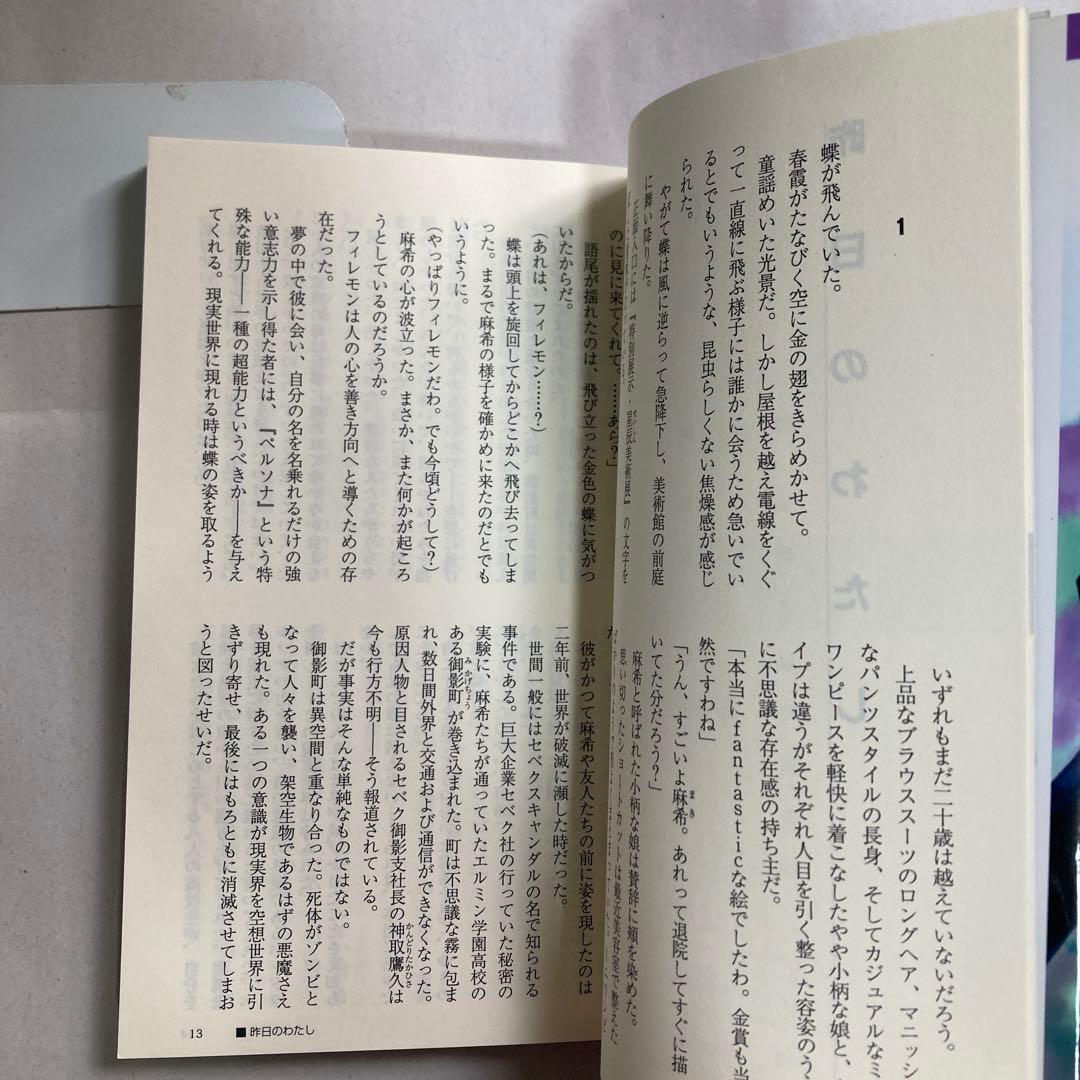 1
蝶が飛んでいた。
春霞がたなびく空に金の翅をきらめかせて。
童謡めいた光景だ。しかし屋根を越え電線をくぐ
って一直線に飛ぶ様子には誰かに会うため急いでい
るとでもいうような、昆虫らしくない焦燥感が感じ
られた。
やがて蝶は風に逆らって急降下し、美術館の前庭
に舞い降りた。
正面入口には『特別展示・星辰美術展』の文字を
いずれもまだ二十歳は越えていないだろう。
上品なブラウススーツのロングヘア、マニッシ
なパンツスタイルの長身、そしてカジュアルなミ
ワンピースを軽快に着こなしたやや小柄な娘と、
イプは違うがそれぞれ人目を引く整った容姿のう
に不思議な存在感の持ち主だ。
「本当にfantasticな絵でしたわ。金賞も当
然ですわね」
「うん、すごいよ麻希。あれって退院してすぐに描
まき
いてた分だろう？」
麻希と呼ばれた小柄な娘は賛辞に頬を染めた。
思い切ったショートカットは最近美容室で整えた
のに見に来てくれて。……あら？」
語尾が揺れたのは、飛び立った金色の蝶に気がつ
いたからだ。
（あれは、フィレモン……？）
蝶は頭上を旋回してからどこかへ飛び去ってしま
った。まるで麻希の様子を確かめに来たのだとでも
いうように。
（やっぱりフィレモンだわ。でも今頃どうして？）
麻希の心が波立った。まさか、また何かが起ころ
うとしているのだろうか。
フィレモンは人の心を善き方向へと導くための存
在だった。
夢の中で彼に会い、自分の名を名乗れるだけの強
い意志力を示し得た者には、『ペルソナ』という特
殊な能力――一種の超能力というべきか――を与え
てくれる。現実世界に現れる時は蝶の姿を取るよう
だ
彼がかつて麻希や友人たちの前に姿を現したのは
二年前、世界が破滅に瀕した時だった。
世間一般にはセベクスキャンダルの名で知られる
事件である。巨大企業セベク社の行っていた秘密の
実験に、麻希たちが通っていたエルミン学園高校の
ある御影町が巻き込まれた。町は不思議な霧に包ま
みかげちょう
れ、数日間外界と交通および通信ができなくなった。
原因人物と目されるセベク御影支社長の神取鷹久は
かんどりたかひさ
今も行方不明――そう報道されている。
だが事実はそんな単純なものではない。
御影町は異空間と重なり合った。死体がゾンビと
なって人々を襲い、架空生物であるはずの悪魔さえ
も現れた。ある一つの意識が現実界を空想世界に引
きずり寄せ、最後にはもろともに消滅させてしまお
うと図ったせいだ。
13 ■昨日のわたし